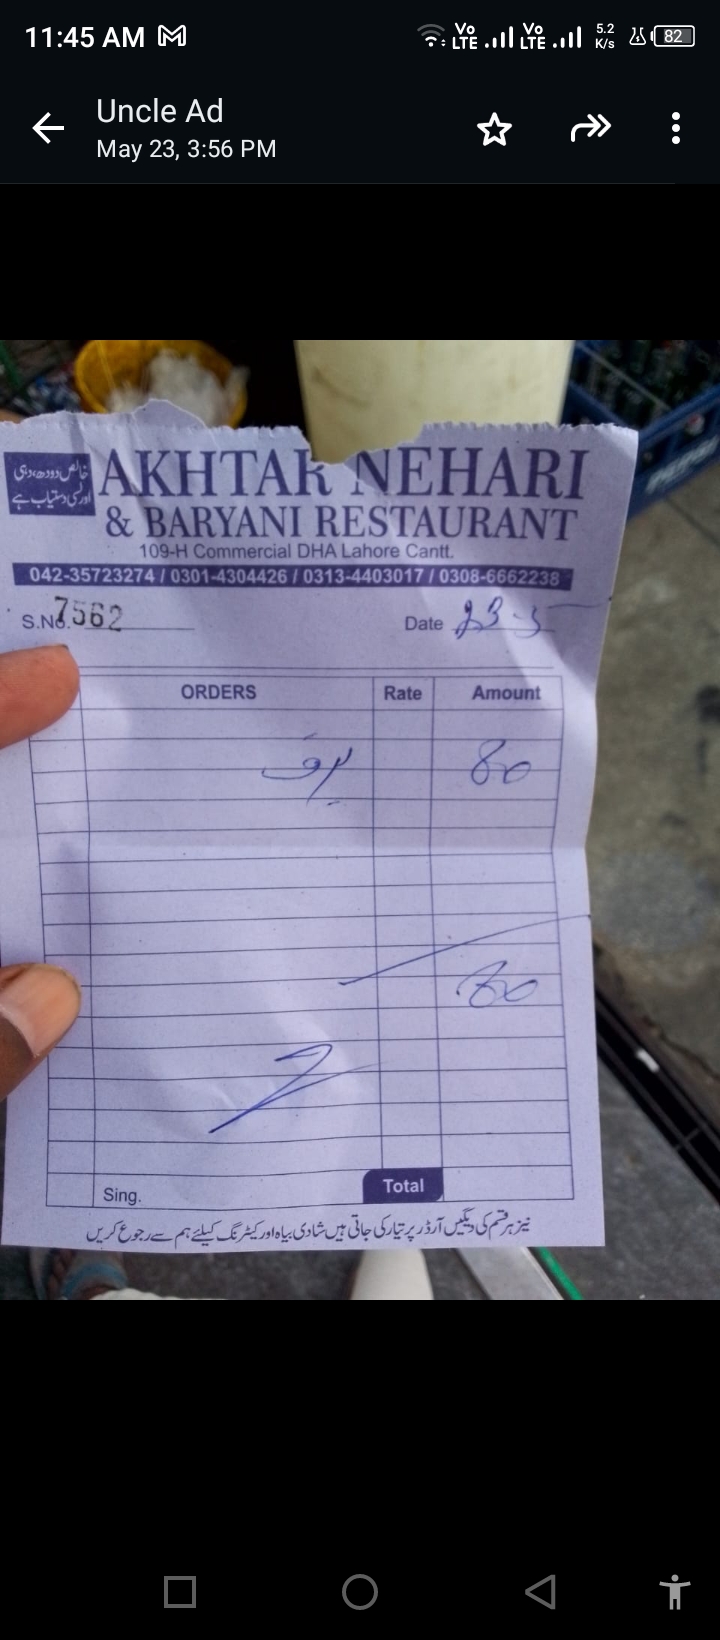 11:45 AM
Vo LTE Vo LTE 5.2 K/s 82
Uncle Ad
May 23, 3:56 PM
خالص دودھ، دہی
اور لسی دستیاب ہے
AKHTAR NEHARI
& BARYANI RESTAURANT
109-H Commercial DHA Lahore Cantt.
042-35723274 / 0301-4304426 / 0313-4403017 / 0308-6662238
S.No. 7562 Date 23-5
ORDERS Rate Amount
برف 80
80
Sing. Total
نیز ہر قسم کی دیگیں آرڈر پر تیار کی جاتی ہیں شادی بیاہ اور کیٹرنگ کیلئے ہم سے رجوع کریں